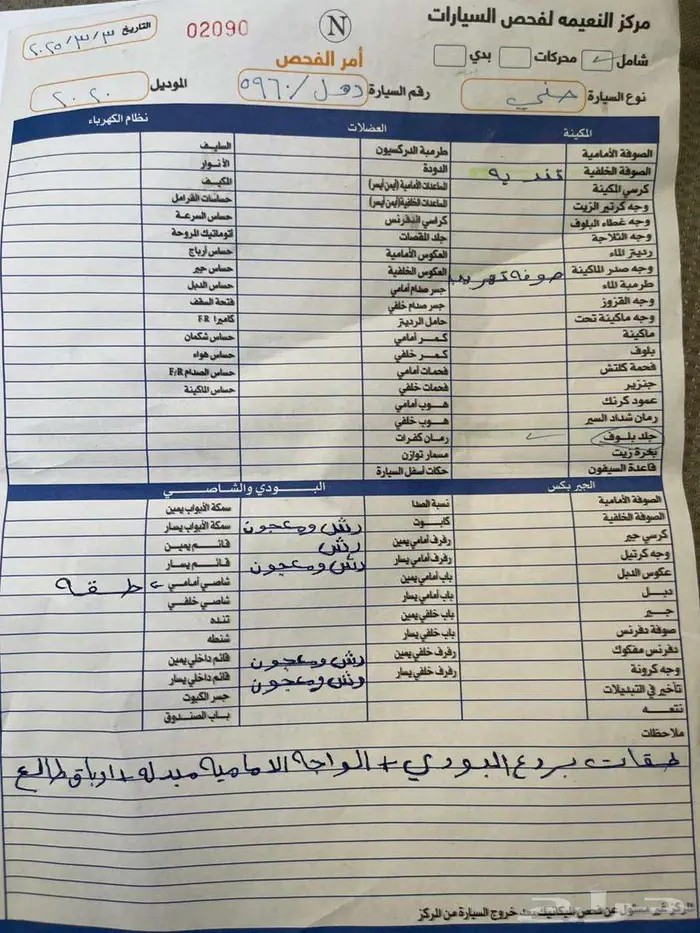 مركز النعيمه لفحص السيارات
N
02090
التاريخ ٢٠٢٥/٣/٣
شامل ✓ محركات بدي
أمر الفحص
نوع السيارة
رقم السيارة ٥٩٦٠/
الموديل ٢٠٢٠
المكينة
الصوفة الأمامية
الصوفة الخلفية تنديه
كرسي المكينة
وجه كرتير الزيت
وجه غطاء البلوف
وجه الثلاجة
رديتر الماء
وجه صدر الماكينة
طرمبة الماء
وجه القزوز
وجه ماكينة تحت
ماكينة
بلوف
فحمة كلتش
جنزير
عمود كرنك
رمان شداد السير
جلد بلوف ✓
بخرة زيت
قاعدة السيفون
العضلات
طرمبة الدركسيون
الدودة
الساعدات الأمامية (أيمن أيسر)
الساعدات الخلفية (أيمن أيسر)
كراسي الدفرنس
جلد المقصات
العكوس الأمامية
العكوس الخلفية
جسر صدام أمامي
جسر صدام خلفي
حامل الرديتر
كمر أمامي
كمر خلفي
فحمات أمامي
فحمات خلفي
هوب أمامي
هوب خلفي
رمان كفرات
مسمار توازن
حكات أسفل السيارة
نظام الكهرباء
السليف
الأنوار
المكيف
حساسات الفرامل
حساس السرعة
أتوماتيك المروحة
حساس أرباج
حساس جير
حساس الدبل
فتحة السقف
كاميرا F-R
حساس شكمان
حساس هواء
حساس الصدام F/R
حساس الماكينة
الجير بكس
الصوفة الأمامية
الصوفة الخلفية
كرسي جير
وجه كرتيل
عكوس الدبل
دبل
جير
صوفة دفرنس
دفرنس مفكوك
وجه كرونة
تأخير في التبديلات
نتعه
البودي والشاصي
نسبة الصدا
كابوت
رفرف أمامي يمين
رفرف أمامي يسار
باب أمامي يمين
باب أمامي يسار
باب خلفي يمين
باب خلفي يسار
رفرف خلفي يمين
رفرف خلفي يسار
سمكة الأبواب يمين
سمكة الأبواب يسار رش ومعجون
قائم يمين رش
قائم يسار رش ومعجون
شاصي أمامي طقه
شاصي خلفي
تنده
شنطه
قائم داخلي يمين رش ومعجون
قائم داخلي يسار رش ومعجون
جسر الكبوت
باب الصندوق
ملاحظات
طقات بربع البودي + الواجة الامامية مبدله +
خروج السيارة من المركز